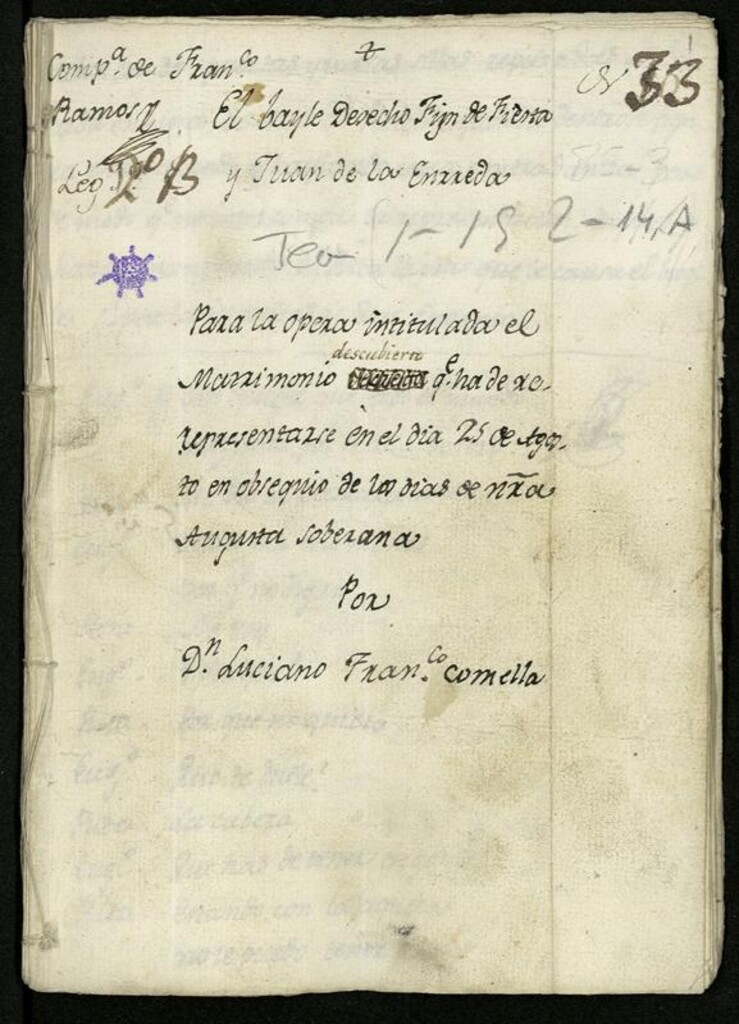 Comp.ª de Fran.co
Ramos
N 33
El bayle Derecho Fijn de Fiesta
Leg.
y Juan de la Enrreda
Tea 1-152-14, A
Para la opera intitulada el
descubierto
Matrimonio q.e ha de re-
representarse en el dia 25 de Agos-
to en obsequio de los dias de nr̃a
Augusta soberana
Por
D.n Luciano Fran.co comella